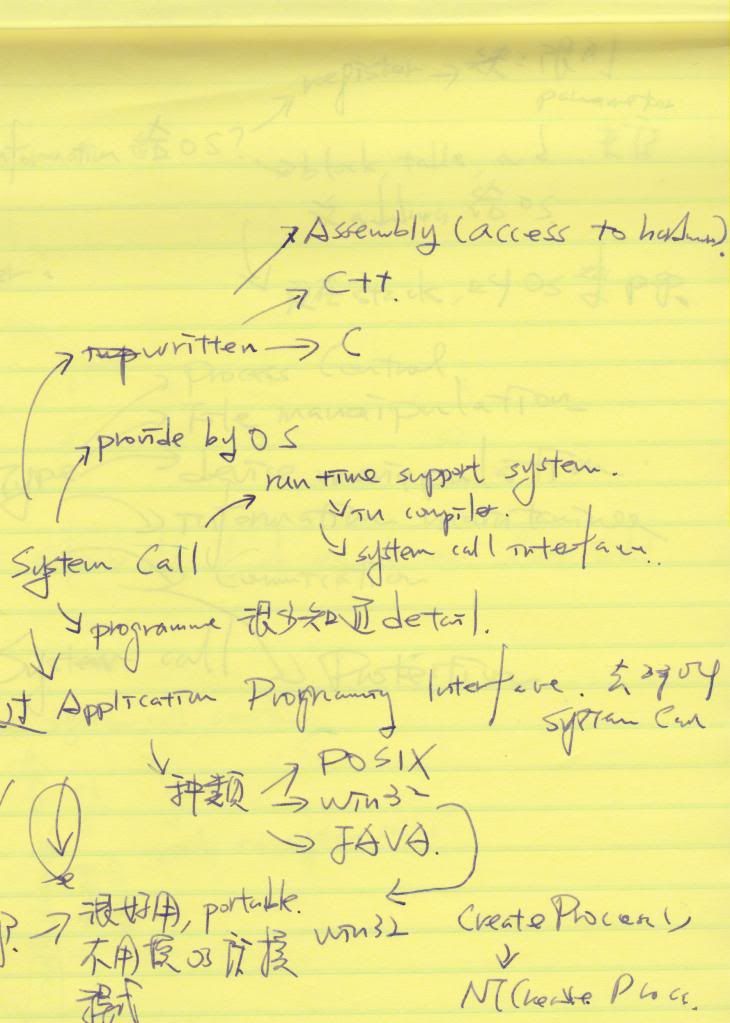 Assembly (access to hardware).
C++.
written → C
provide by OS
run time support system.
in compiler.
system call interface.
System Call
programme 很少知道 detail.
过 Application Programing Interface. 去呼叫
System Call
种类
POSIX
Win32
JAVA.
很好用, portable.
不用换 OS
程式
Win32
CreateProcess()
NTCreate Process.